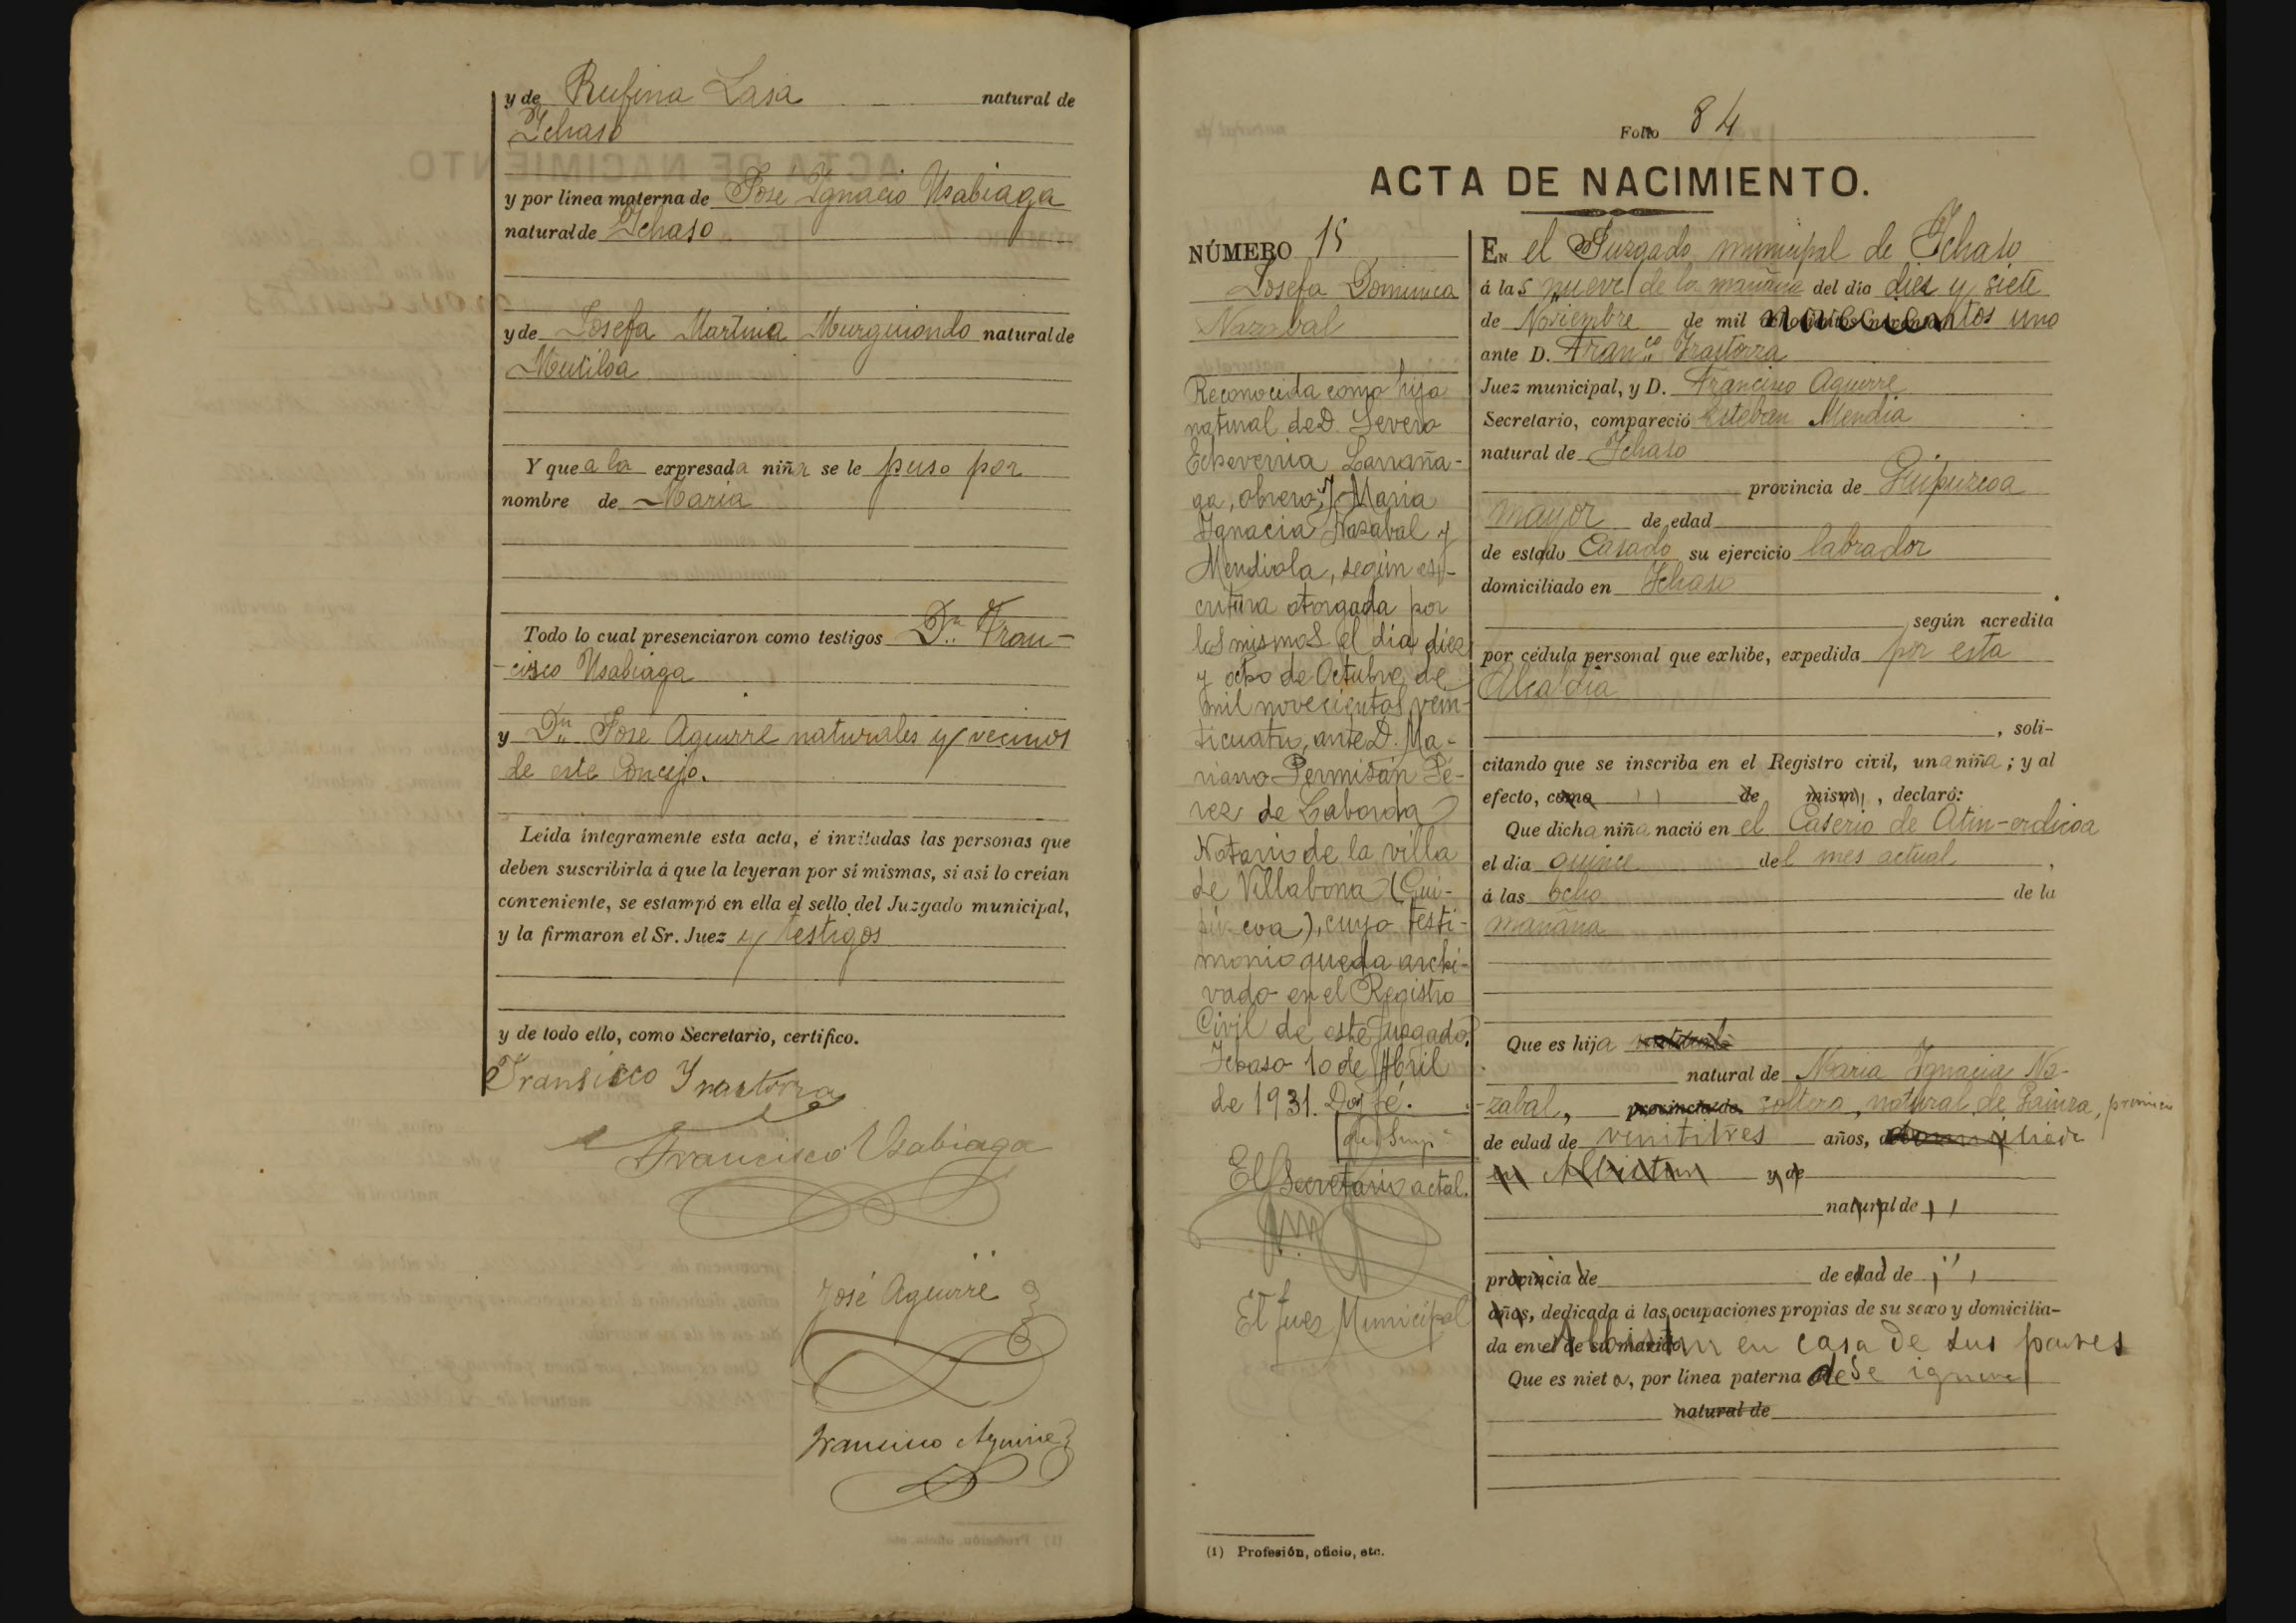 y de Rufina Lasa natural de
Ichaso
y por línea materna de Jose Ignacio Usabiaga
natural de Ichaso
y de Josefa Martina Murguiondo natural de
Mutiloa
Y que a la expresada niña se le puso por
nombre de Maria
Todo lo cual presenciaron como testigos Dn. Fran-
-cisco Usabiaga
y Dn. Jose Aguirre naturales y vecinos
de este Concejo.
Leída íntegramente esta acta, é invitadas las personas que
deben suscribirla á que la leyeran por sí mismas, si así lo creían
conveniente, se estampó en ella el sello del Juzgado municipal,
y la firmaron el Sr. Juez y testigos
y de todo ello, como Secretario, certifico.
Fransisco Yrastorza
Francisco Usabiaga
José Aguirre
Francisco Aguirre
Folio 84
ACTA DE NACIMIENTO.
NÚMERO 15
Josefa Dominica
Nazabal
Reconocida como hija
natural de D. Severo
Echeverria Larraña-
ga, obrero, y Maria
Ignacia Nazabal y
Mendiola, según es-
critura otorgada por
los mismos el día diez
y ocho de Octubre de
mil novecientos vein-
ticuatro, ante D. Ma-
riano Permisán Pé-
rez de Laborda
Notario de la villa
de Villabona (Gui-
púzcoa), cuyo testi-
monio queda archi-
vado en el Registro
Civil de este Juzgado.
Ichaso 10 de Abril
de 1931. Doy fé.
El Secretario actal.
El Juez Municipal
En el Juzgado municipal de Ichaso
á las nueve de la mañana del día diez y siete
de Noviembre de mil novecientos uno
ante D. Franco. Irastorza
Juez municipal, y D. Francisco Aguirre
Secretario, compareció Esteban Mendia
natural de Ichaso
provincia de Guipuzcoa
mayor de edad
de estado Casado su ejercicio labrador
domiciliado en Ichaso
según acredita
por cédula personal que exhibe, expedida por esta
Alcaldia
, soli-
citando que se inscriba en el Registro civil, una niña; y al
efecto, como de mism , declaró:
Que dicha niña nació en el Caserio de Atin-erdicoa
el día quince del mes actual ,
á las ocho de la
mañana
Que es hija
natural de Maria Ignacia Na-
-zabal, provincia de soltera, natural de Gainza, provincia
de edad de ventitres años,
y de
natural de
provincia de de edad de
años, dedicada á las ocupaciones propias de su sexo y domicilia-
da en el de su marido en casa de sus padres
Que es nieta, por línea paterna de se ignora
natural de
(1) Profesión, oficio, etc.